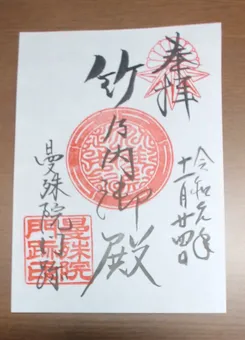 奉拝
令和元年
十一月廿四日
竹乃内御殿
曼殊院門跡
曼殊院
門跡印